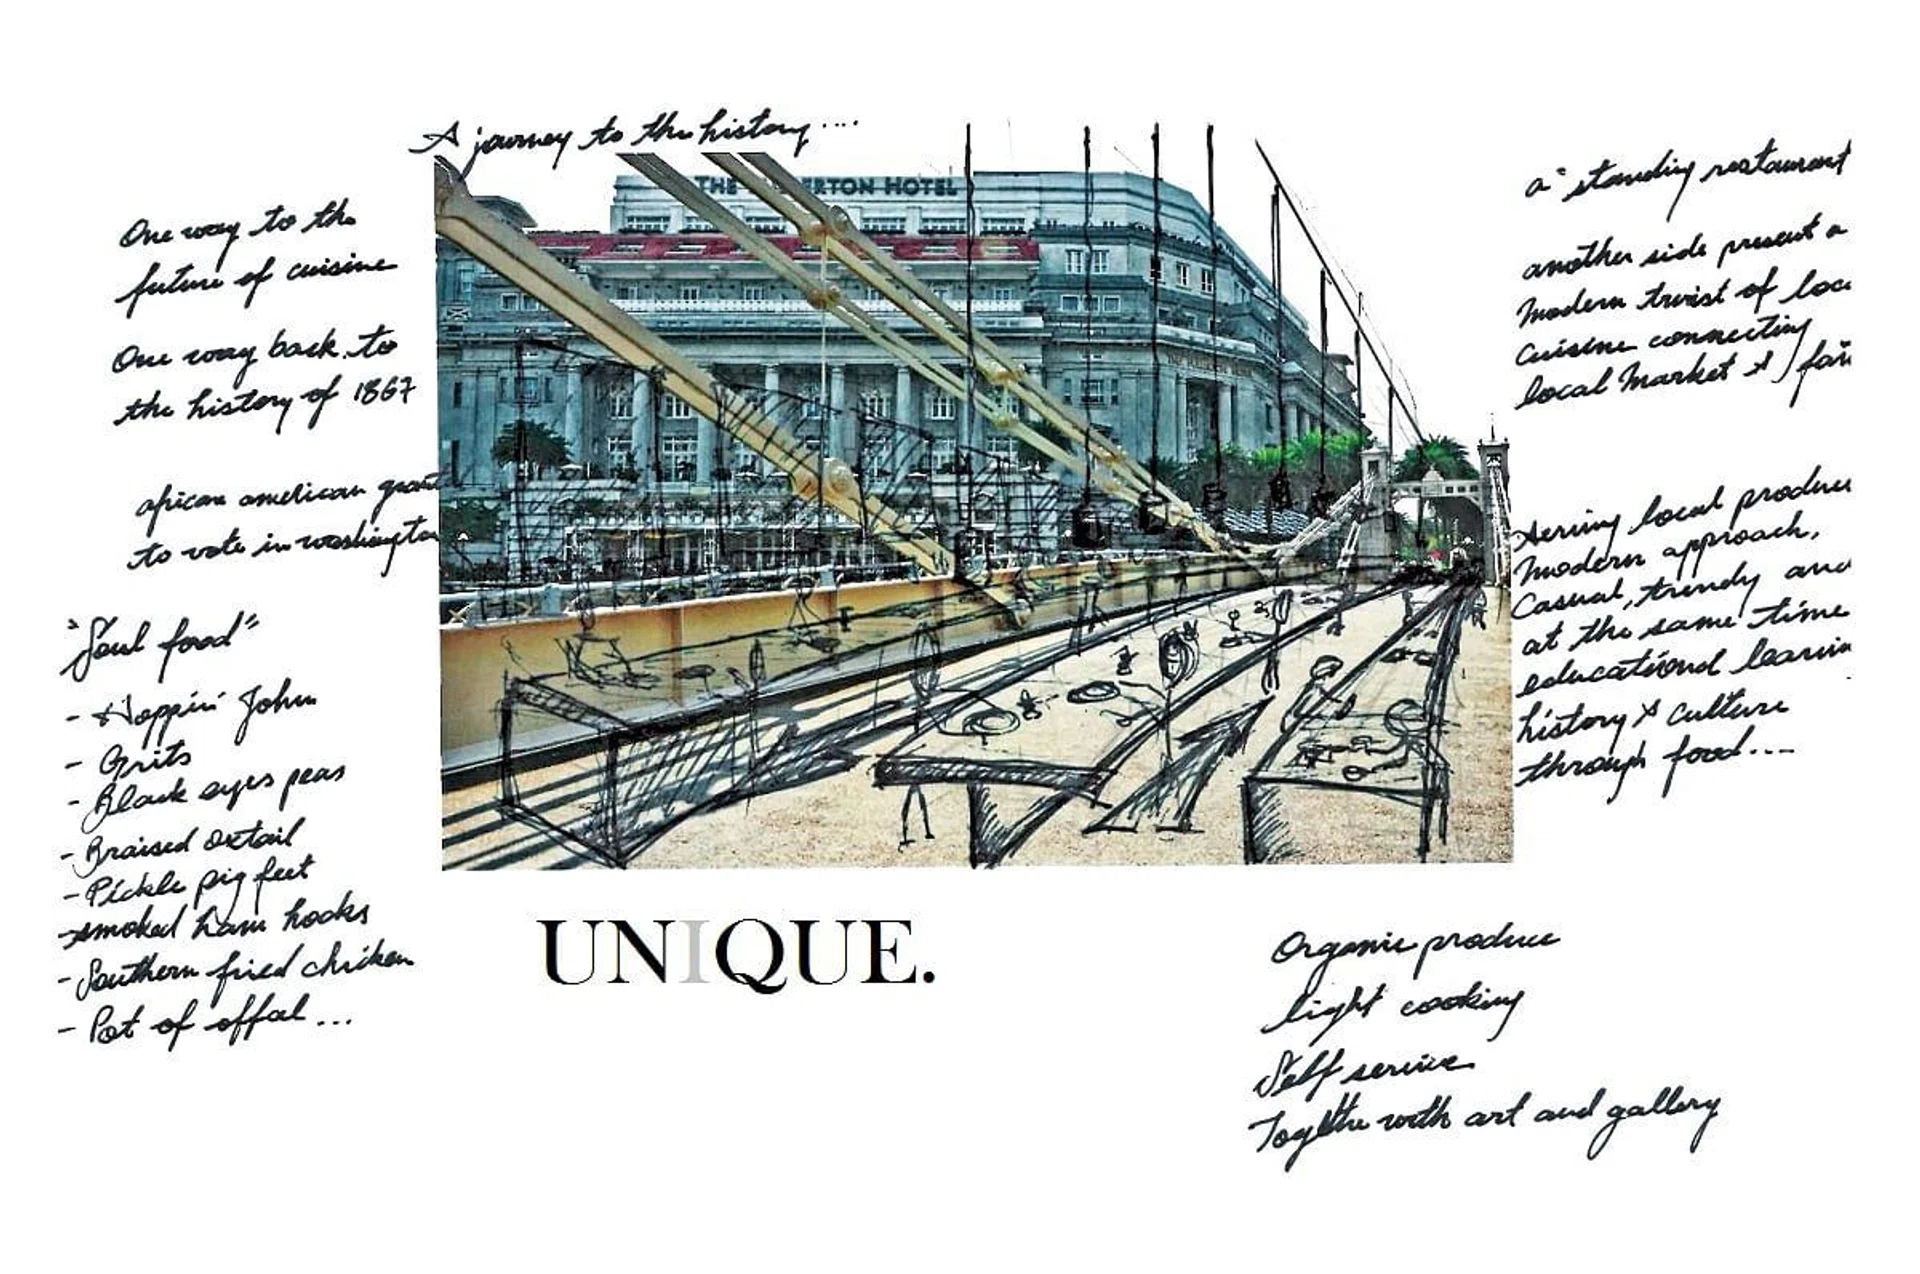 A journey to the history....
One way to the
future of cuisine
One way back to
the history of 1867
african american grant
to vote in washington
"Soul food"
- Hoppin' John
- Grits
- Black eyes peas
- Braised oxtail
- Pickle pig feet
- smoked ham hocks
- Southern fried chicken
- Pot of offal...
THE FULLERTON HOTEL
UNIQUE.
a "standing restaurant
another side present a
modern twist of loca
cuisine connecting
local market &
Serving local produce
modern approach,
Casual, trendy and
at the same time
educational learnin
history & culture
through food....
Organic produce
light cooking
Self service
with art and gallery